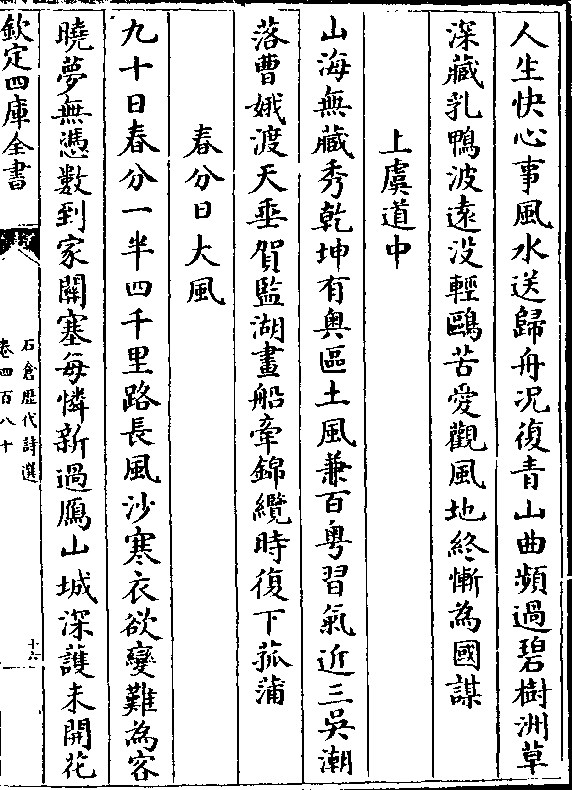 人生快心事風水送歸舟况復青山曲頻過碧樹洲草
深藏乳鴨波遠没輕鷗苦愛觀風地終慚為國謀
上虞道中
山海無藏秀乾坤有奥區土風兼百粤習氣近三吳潮
落曹娥渡天垂賀監湖畫船牽錦纜時復下菰蒲
春分日大風
九十日春分一半四千里路長風沙寒衣欲變難為容
曉夢無憑數到家關塞每憐新過鴈山城深護未開花
欽定四庫全書
石倉歴代詩選
卷四百八十
十六